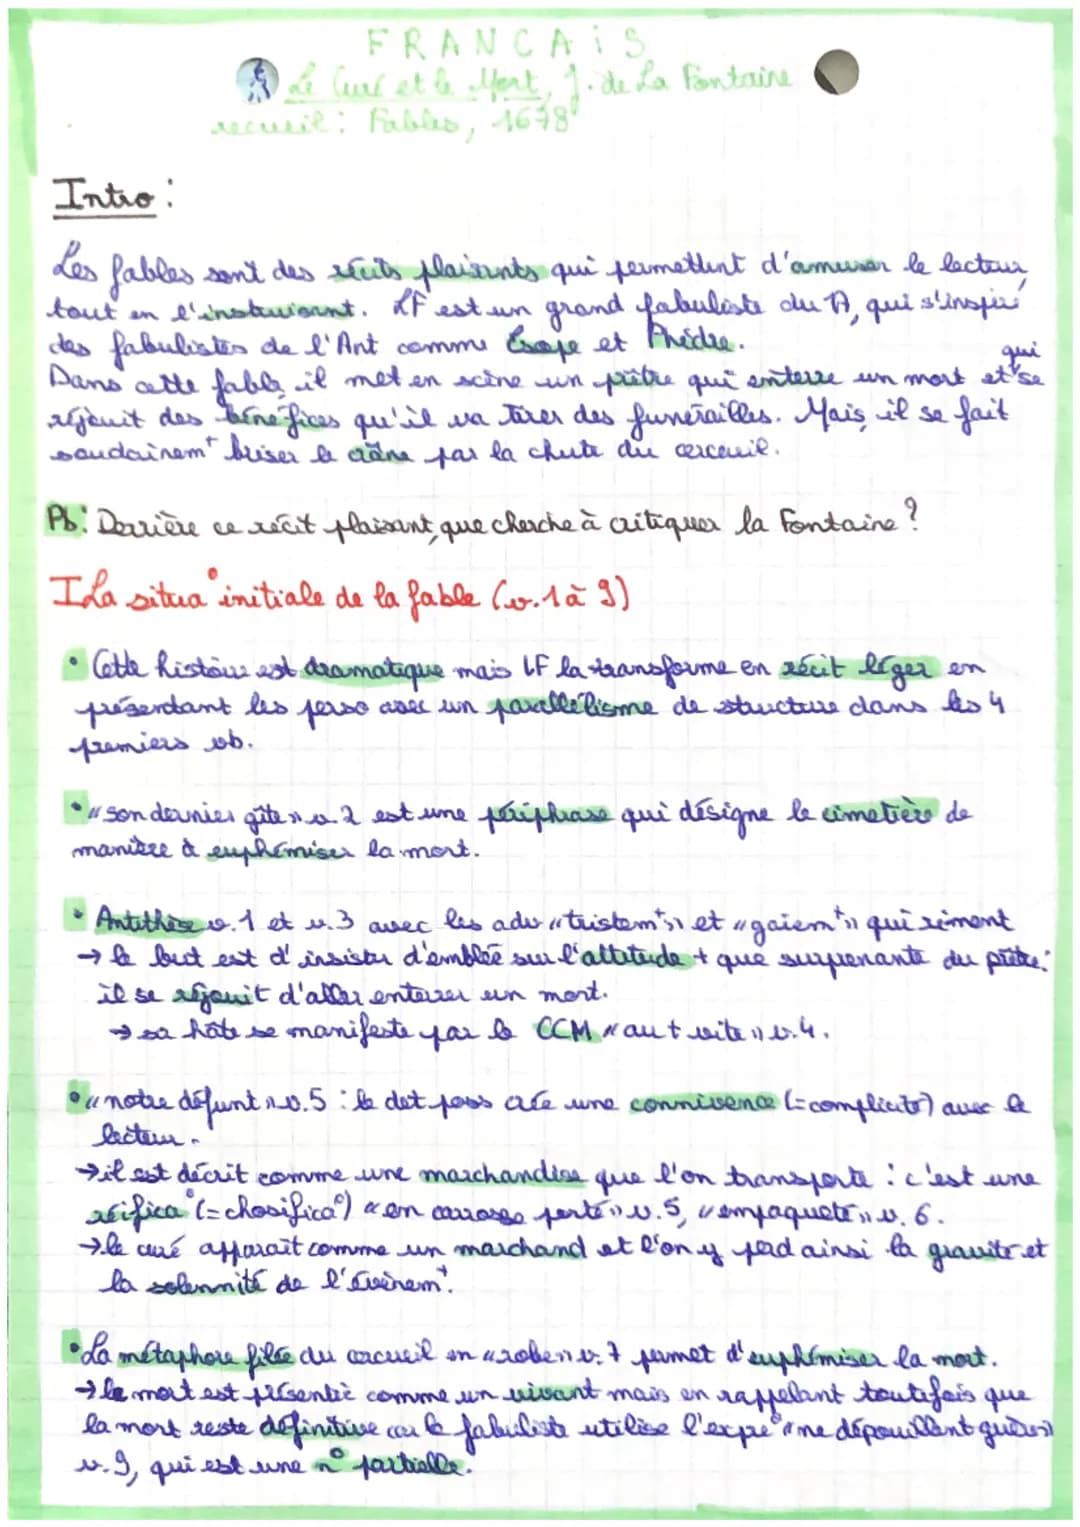 FRANCAiS
Le Curé et le Mort, J. de La Fontaine
recueil : Fables, 1678
Intro :
Les fables sont des récits plaisants qui permettent d'amuser le lecteur,
tout en l'instruisant. LF est un grand fabuliste du 17, qui s'inspire
des fabulistes de l'Ant comme Esope et Phèdre.
Dans cette fable, il met en scène un prêtre qui enterre un mort et qui se
réjouit des bénéfices qu'il va tirer des funérailles. Mais il se fait
soudainem^t briser le crâne par la chute du cercueil.
Pb : Derrière ce récit plaisant, que cherche à critiquer la Fontaine ?
I La situa° initiale de la fable (v.1 à 9)
• Cette histoire est dramatique mais LF la transforme en récit léger en
présentant les perso avec un parallélisme de structure dans les 4
premiers vb.
• « son dernier gîte » v.2 est une périphrase qui désigne le cimetière de
manière à euphémiser la mort.
• Antithèse v.1 et v.3 avec les adv « tristem^t » et « gaiem^t » qui riment
→ le but est d'insister d'emblée sur l'attitude + que surprenante du prêtre :
il se réjouit d'aller enterrer un mort.
→ sa hâte se manifeste par le CCM « au + vite » v.4.
• « notre défunt » v.5 : le det poss crée une connivence (=complicité) avec le
lecteur.
→ il est décrit comme une marchandise que l'on transporte : c'est une
réifica° (=chosifica°) « en carrosse porté » v.5, « empaqueté » v.6.
→ le curé apparaît comme un marchand et l'on y perd ainsi la gravité et
la solennité de l'évènem^t.
• La métaphore filée du cercueil en « robe » v.7 permet d'euphémiser la mort.
→ le mort est présenté comme un vivant mais en rappelant toutefois que
la mort reste définitive car le fabuliste utilise l'expre° « ne dépouillent guères »
v.9, qui est une n° partielle.